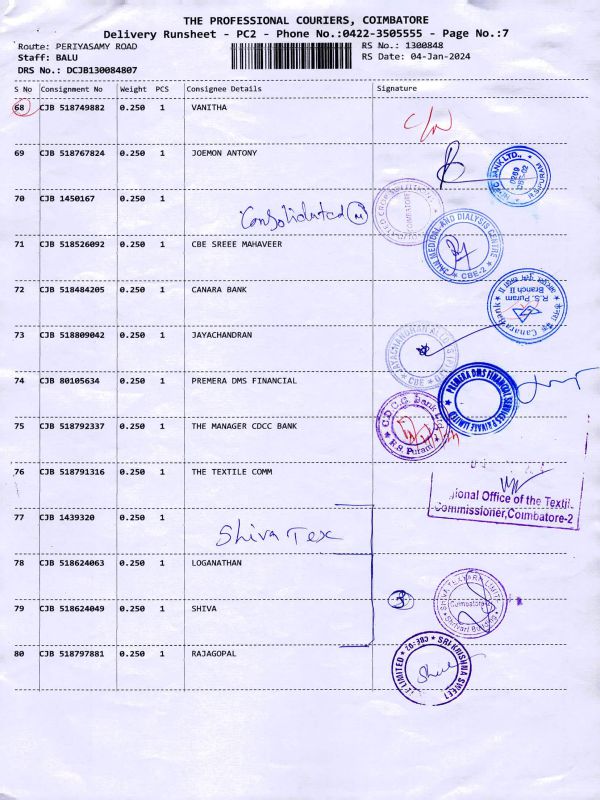 THE PROFESSIONAL COURIERS, COIMBATORE
Delivery Runsheet - PC2 - Phone No.:0422-3505555 - Page No.:7
Route: PERIYASAMY ROAD
RS No.: 1300848
Staff: BALU
RS Date: 04-Jan-2024
DRS No.: DCJB130084807
S No Consignment No Weight PCS Consignee Details Signature
68 CJB 518749882 0.250 1 VANITHA
69 CJB 518767824 0.250 1 JOEMON ANTONY
BANK LTD.,
70 CJB 1450167 0.250 1
Consolidated
71 CJB 518526092 0.250 1 CBE SREEE MAHAVEER
MEDICAL AND DIALYSIS CENTRE
CBE-2
72 CJB 518484205 0.250 1 CANARA BANK
R.S. Puram
Branch II
Canara Bank
73 CJB 518809042 0.250 1 JAYACHANDRAN
CBE
74 CJB 80105634 0.250 1 PREMERA DMS FINANCIAL
PREMERA DMS FINANCIAL SERVICES PRIVATE LIMITED
75 CJB 518792337 0.250 1 THE MANAGER CDCC BANK
C.D.C.C. Bank Ltd
R.S. Puram
76 CJB 518791316 0.250 1 THE TEXTILE COMM
gional Office of the Textile
Commissioner,Coimbatore-2
77 CJB 1439320 0.250 1
Shiva Tex
78 CJB 518624063 0.250 1 LOGANATHAN
79 CJB 518624049 0.250 1 SHIVA
3
Coimbatore
80 CJB 518797881 0.250 1 RAJAGOPAL
SRI KRISHNA SWEET
E LIMITED
CBE-02